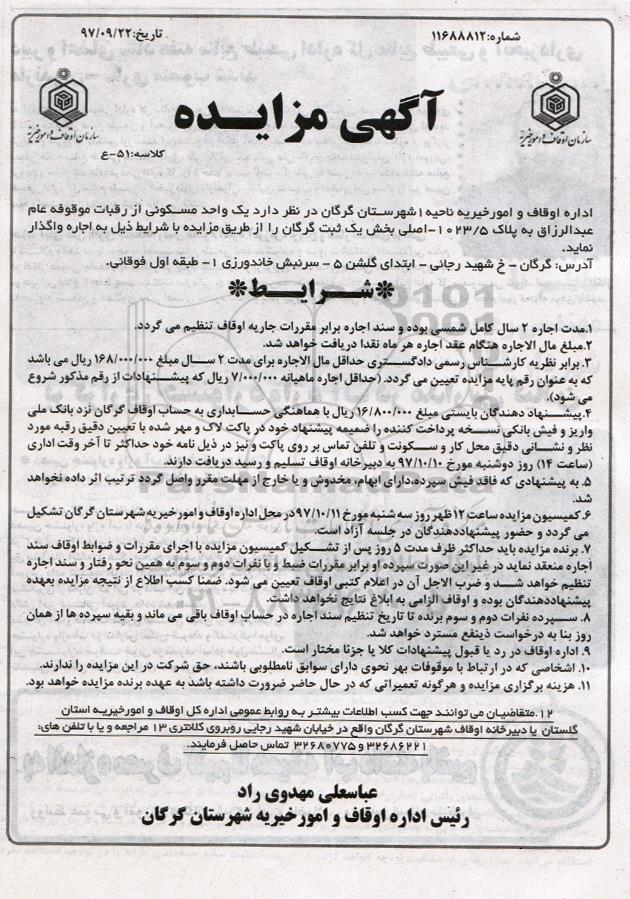 شماره: ۱۱۶۸۸۸۱۲
تاریخ: ۹۷/۰۹/۲۲
آگهی مزایده
سازمان اوقاف و امور خیریه
سازمان اوقاف و امور خیریه
کلاسه: ۵۱-ع
اداره اوقاف و امورخیریه ناحیه ۱ شهرستان گرگان در نظر دارد یک واحد مسکونی از رقبات موقوفه عام
عبدالرزاق به پلاک ۱۰۲۳/۵-اصلی بخش یک ثبت گرگان را از طریق مزایده با شرایط ذیل به اجاره واگذار
نماید.
آدرس: گرگان - خ شهید رجائی - ابتدای گلشن ۵ - سرنبش خاندورزی ۱- طبقه اول فوقانی.
*شرایط*
۱.مدت اجاره ۲ سال کامل شمسی بوده و سند اجاره برابر مقررات جاریه اوقاف تنظیم می گردد.
۲.مبلغ مال الاجاره هنگام عقد اجاره هر ماه نقدا دریافت خواهد شد.
۳. برابر نظریه کارشناس رسمی دادگستری حداقل مال الاجاره برای مدت ۲ سال مبلغ ۱۶۸/۰۰۰/۰۰۰ ریال می باشد
که به عنوان رقم پایه مزایده تعیین می گردد. (حداقل اجاره ماهیانه ۷/۰۰۰/۰۰۰ ریال که پیشنهادات از رقم مذکور شروع
می شود).
۴.پیشنهاد دهندگان بایستی مبلغ ۱۶/۸۰۰/۰۰۰ ریال با هماهنگی حسابداری به حساب اوقاف گرگان نزد بانک ملی
واریز و فیش بانکی نسخه پرداخت کننده را ضمیمه پیشنهاد خود در پاکت لاک و مهر شده با تعیین دقیق رقبه مورد
نظر و نشانی دقیق محل کار و سکونت و تلفن تماس بر روی پاکت و نیز در ذیل نامه خود حداکثر تا آخر وقت اداری
(ساعت ۱۴) روز دوشنبه مورخ ۹۷/۱۰/۱۰ به دبیرخانه اوقاف تسلیم و رسید دریافت دارند.
۵. به پیشنهادی که فاقد فیش سپرده،دارای ابهام، مخدوش و یا خارج از مهلت مقرر واصل گردد ترتیب اثر داده نخواهد
شد.
۶.کمیسیون مزایده ساعت ۱۲ ظهر روز سه شنبه مورخ ۹۷/۱۰/۱۱ در محل اداره اوقاف و امور خیریه شهرستان گرگان تشکیل
می گردد و حضور پیشنهاددهندگان در جلسه آزاد است.
۷. برنده مزایده باید حداکثر ظرف مدت ۵ روز پس از تشکیل کمیسیون مزایده با اجرای مقررات و ضوابط اوقاف سند
اجاره منعقد نماید در غیر این صورت سپرده او برابر مقررات ضبط و با نفرات دوم و سوم به همین نحو رفتار و سند اجاره
تنظیم خواهد شد و ضرب الاجل آن در اعلام کتبی اوقاف تعیین می شود. ضمنا کسب اطلاع از نتیجه مزایده بعهده
پیشنهاددهندگان بوده و اوقاف الزامی به ابلاغ نتایج نخواهد داشت.
۸. سپرده نفرات دوم و سوم برنده تا تاریخ تنظیم سند اجاره در حساب اوقاف باقی می ماند و بقیه سپرده ها از همان
روز بنا به درخواست ذینفع مسترد خواهد شد.
۹. اداره اوقاف در رد یا قبول پیشنهادات کلا یا جزئا مختار است.
۱۰. اشخاصی که در ارتباط با موقوفات بهر نحوی دارای سوابق نامطلوبی باشند، حق شرکت در این مزایده را ندارند.
۱۱. هزینه برگزاری مزایده و هرگونه تعمیراتی که در حال حاضر ضرورت داشته باشد به عهده برنده مزایده خواهد بود.
۱۲.متقاضیان می توانند جهت کسب اطلاعات بیشتر به روابط عمومی اداره کل اوقاف و امورخیریه استان
گلستان یا دبیرخانه اوقاف شهرستان گرگان واقع در خیابان شهید رجایی روبروی کلانتری ۱۳ مراجعه و یا با تلفن های:
۳۲۶۸۶۲۲۱ و ۳۲۶۸۰۷۷۵ تماس حاصل فرمایند.
عباسعلی مهدوی راد
رئیس اداره اوقاف و امورخیریه شهرستان گرگان